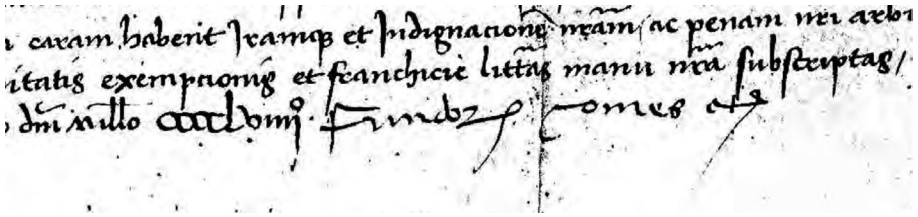 caram haberit Iramque et Indignacione nram / ac penam nri arbi
itatis exempcionis et franchicie littas manu nra subscriptas /
dni millo ccccLviiijo. Fundor comes etc